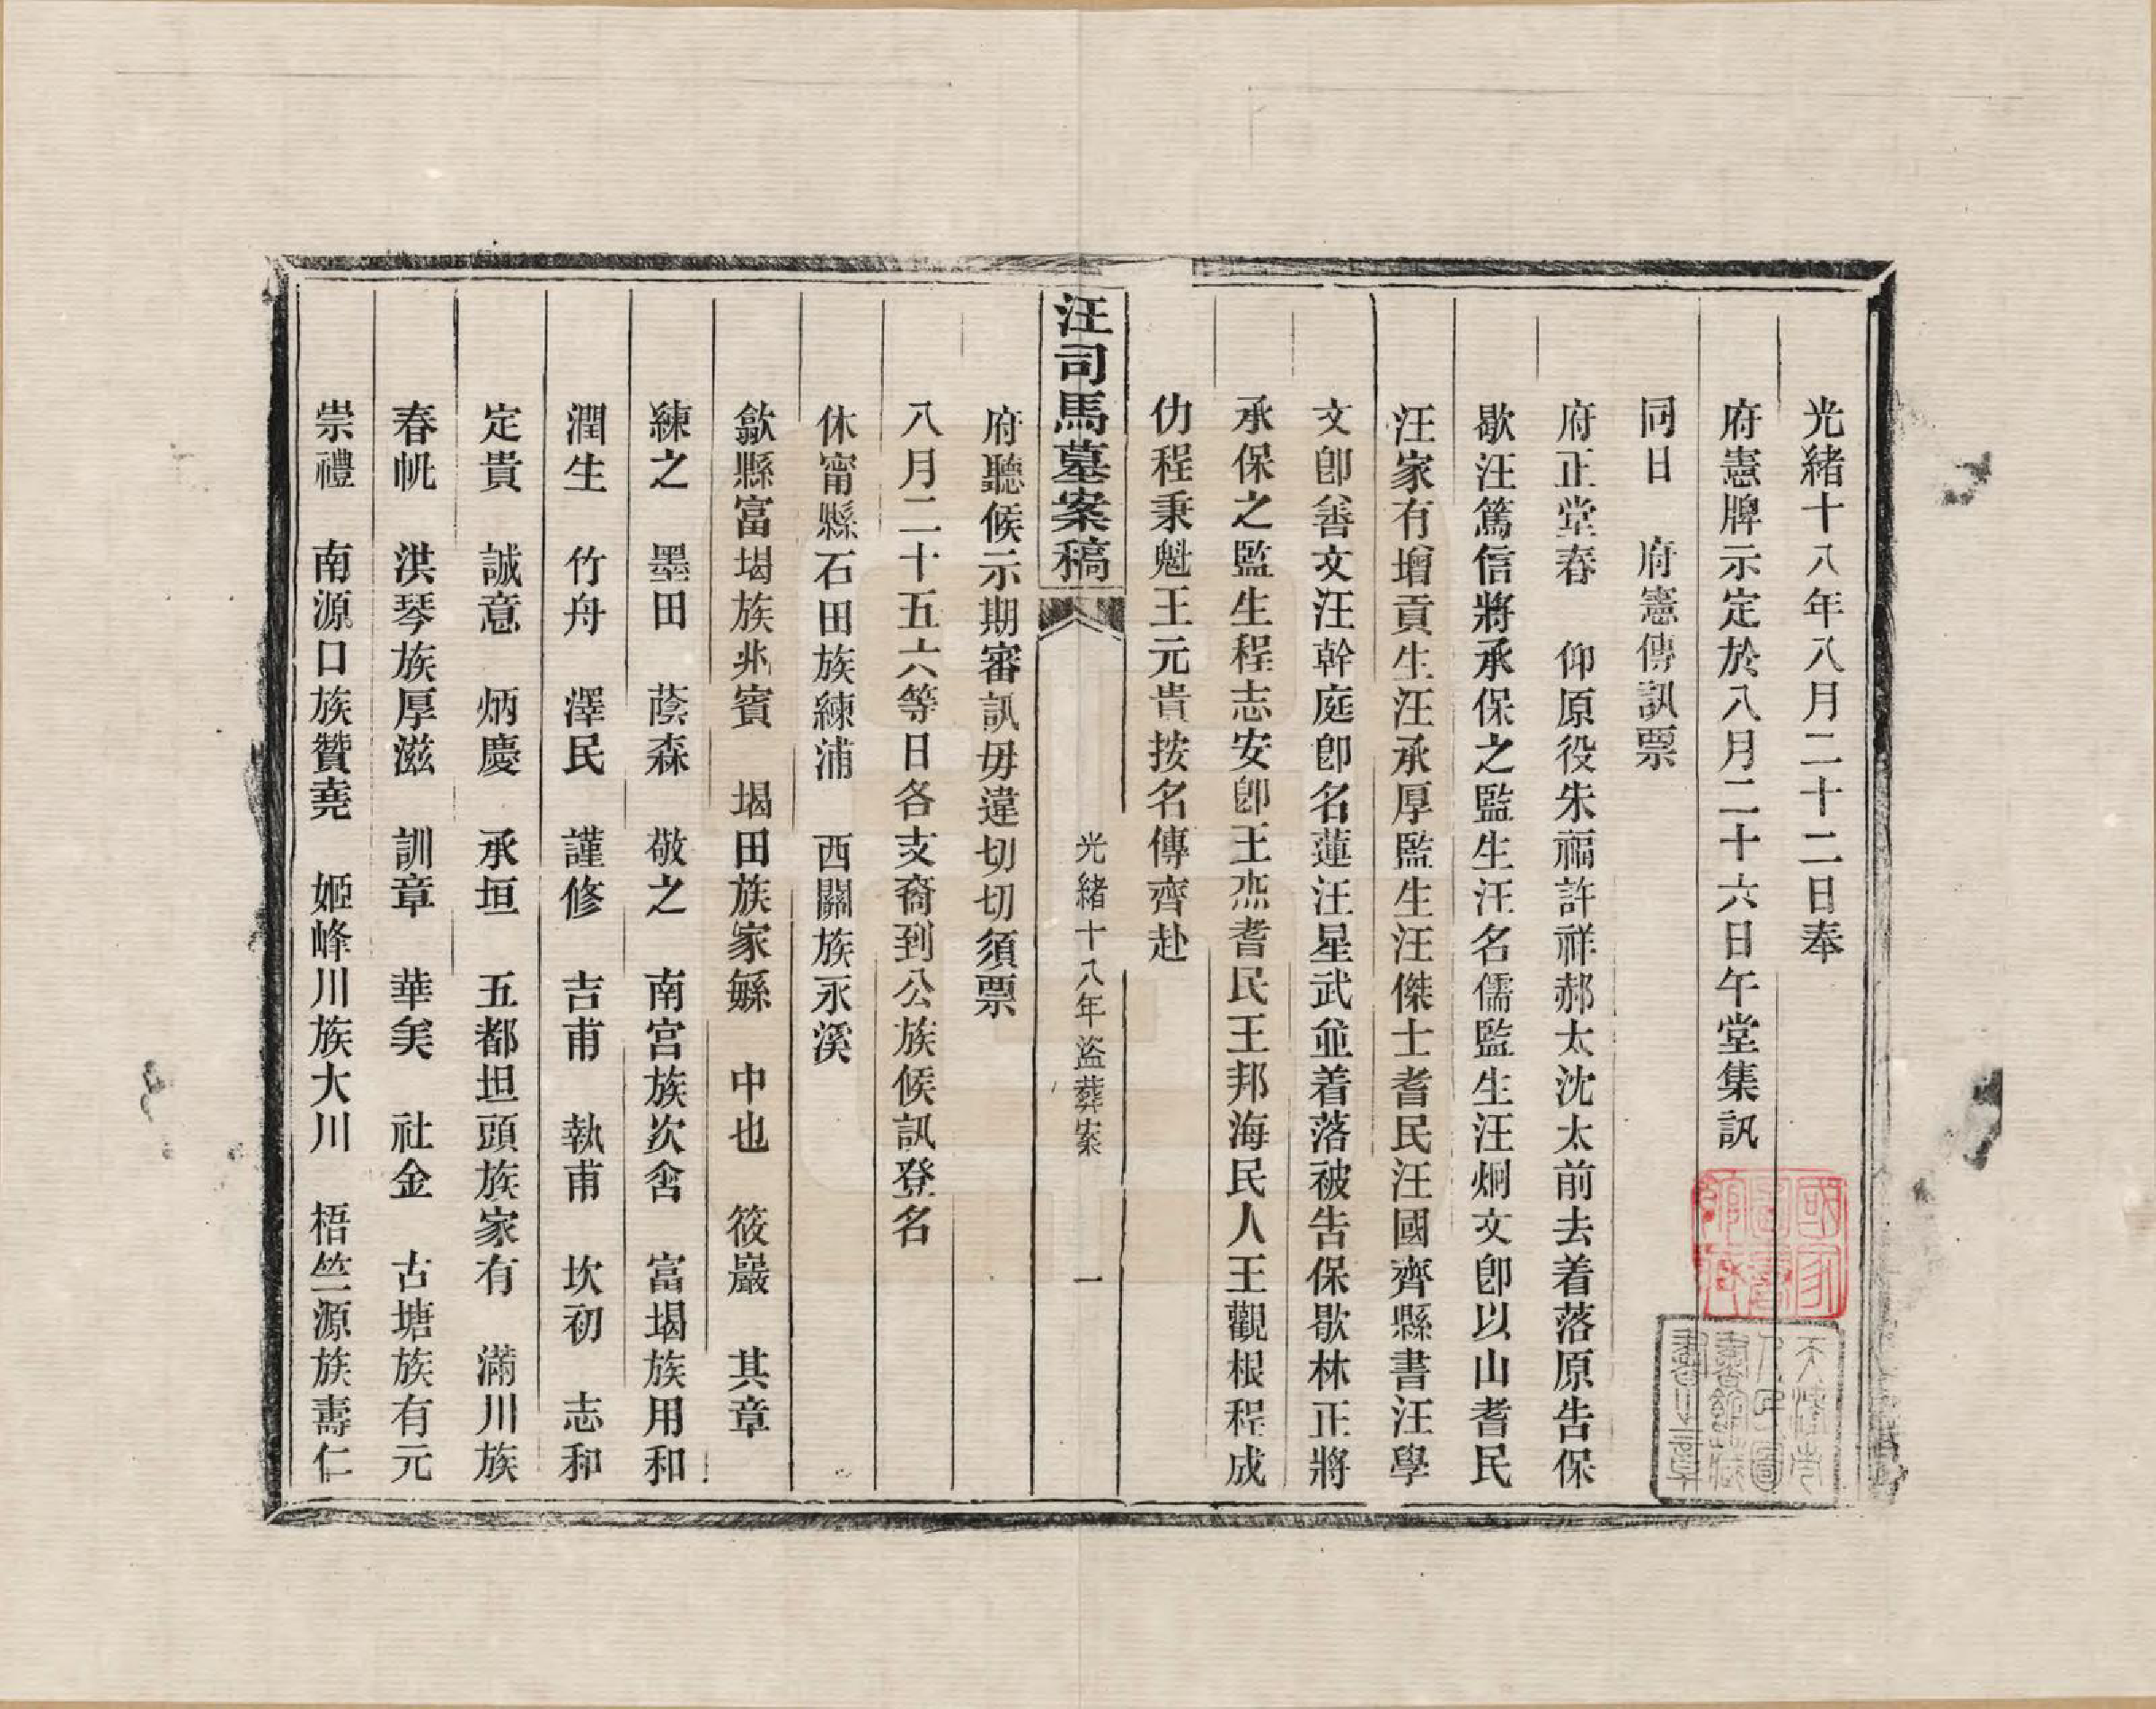 光緒十八年八月二十二日奉
府憲牌示定於八月二十六日午堂集訊
同日　府憲傳訊票
府正堂春　仰原役朱福許祥郝太沈太前去着落原告保
歇汪篤信將承保之監生汪名儒監生汪炯文卽以山耆民
汪家有增貢生汪承厚監生汪傑士耆民汪國齊縣書汪學
文卽善文汪幹庭卽名蓮汪星武並着落被告保歇林正將
承保之監生程志安卽王烋耆民王邦海民人王觀根程成
仂程秉魁王元貴按名傳齊赴
汪司馬墓案稿
光緒十八年盜葬案
一
府聽候示期審訊毋違切切須票
八月二十五六等日各支裔到公族候訊登名
休甯縣石田族練浦　西關族永溪
歙縣富堨族兆賓　堨田族家緜　中也　筱巖　其章
練之　墨田　蔭森　敬之　南宮族次畬　富堨族用和
潤生　竹舟　澤民　謹修　吉甫　執甫　坎初　志和
定貴　誠意　炳慶　承垣　五都坦頭族家有　滿川族
春帆　洪琴族厚滋　訓章　華美　社金　古塘族有元
崇禮　南源口族贊堯　姬峰川族大川　梧竺源族壽仁
國家圖書館藏
天津市人民圖書館藏書之章